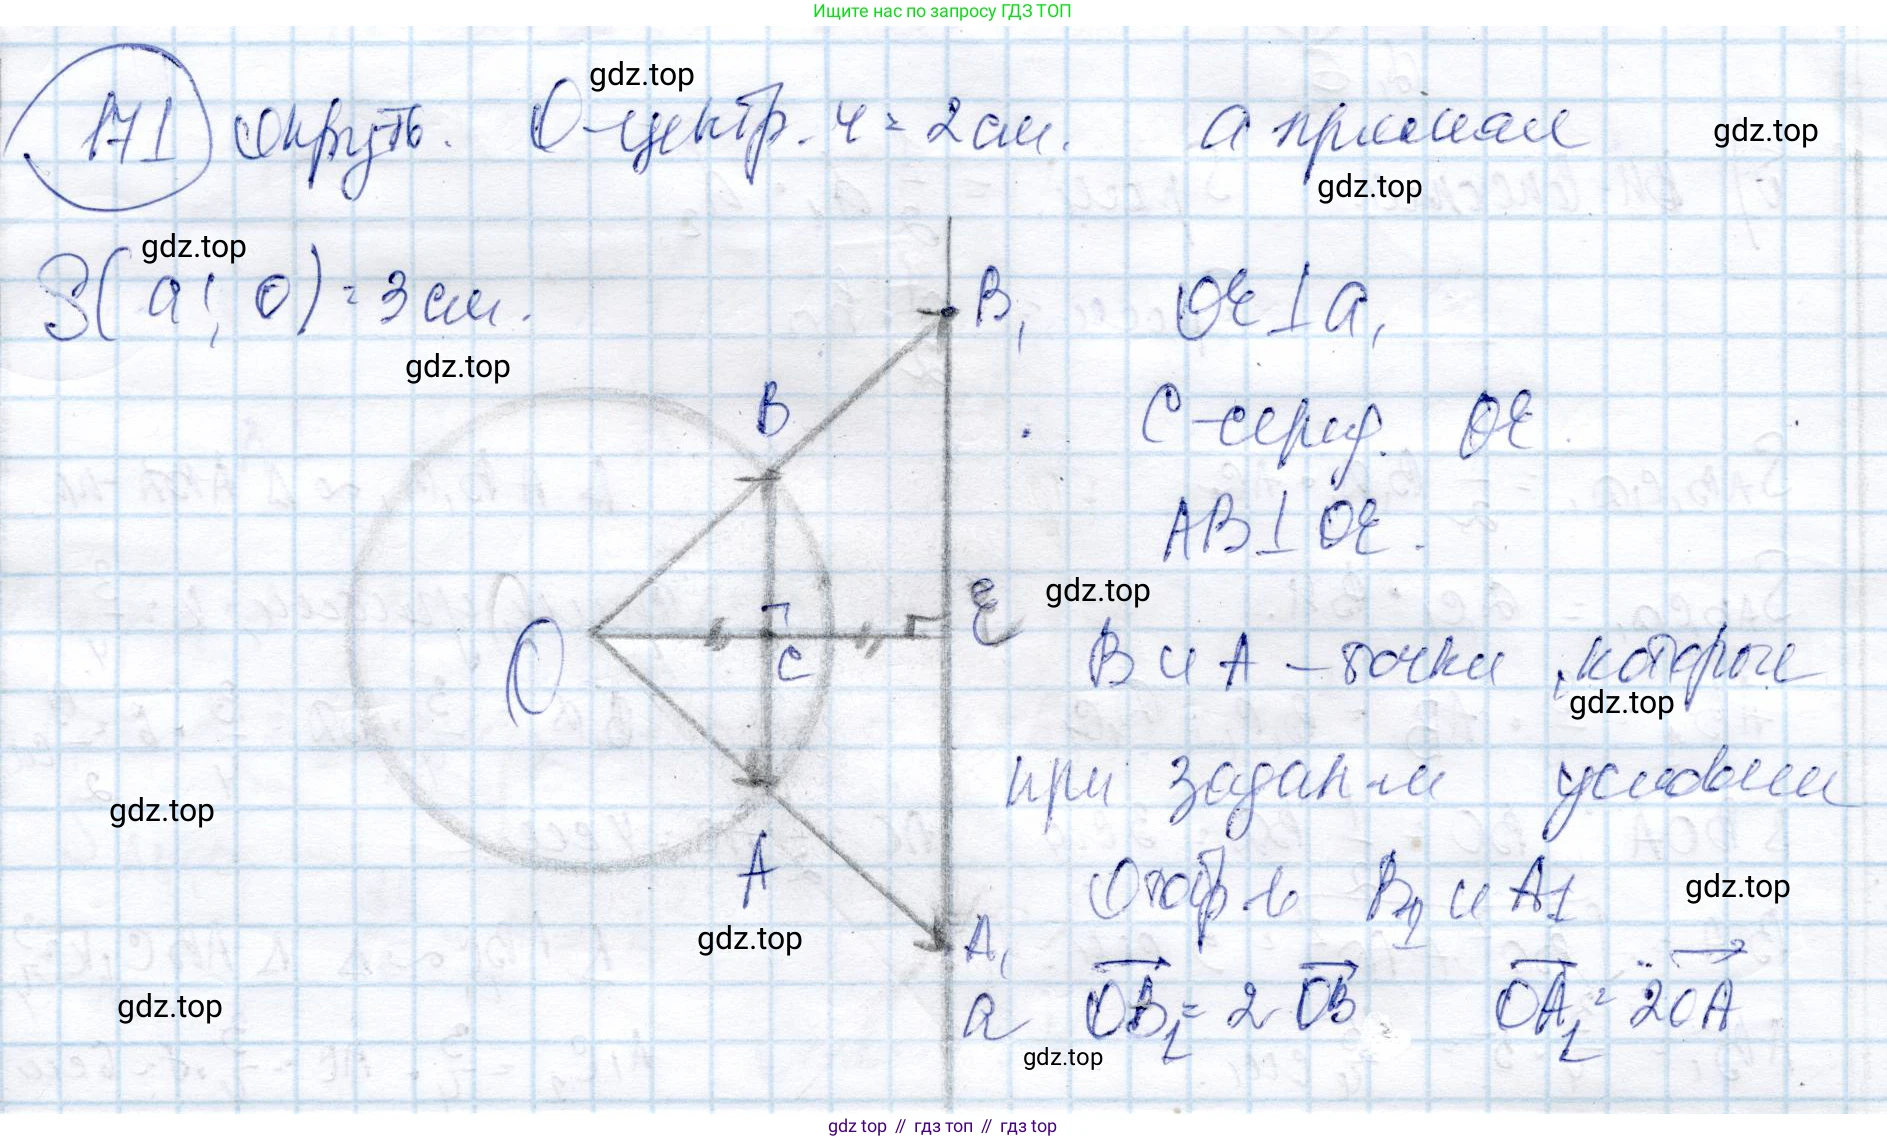 Ищите нас по запросу ГДЗ ТОП
gdz.top
171 Окруж-ть. O-центр. r = 2 см. a прямая
gdz.top
gdz.top
gdz.top
S(a; O) = 3 см.
B₁ OE ⊥ a,
gdz.top
B C-серед. OE
AB ⊥ OE.
E gdz.top
O C B и A – точки, которые
gdz.top
при задан-м условии
gdz.top
A Отобр-ь B₁ и A₁
gdz.top
gdz.top A₁
a OB₁ = 2 OB OA₁ = 2 OA
gdz.top
gdz.top
gdz.top // гдз топ // гдз top